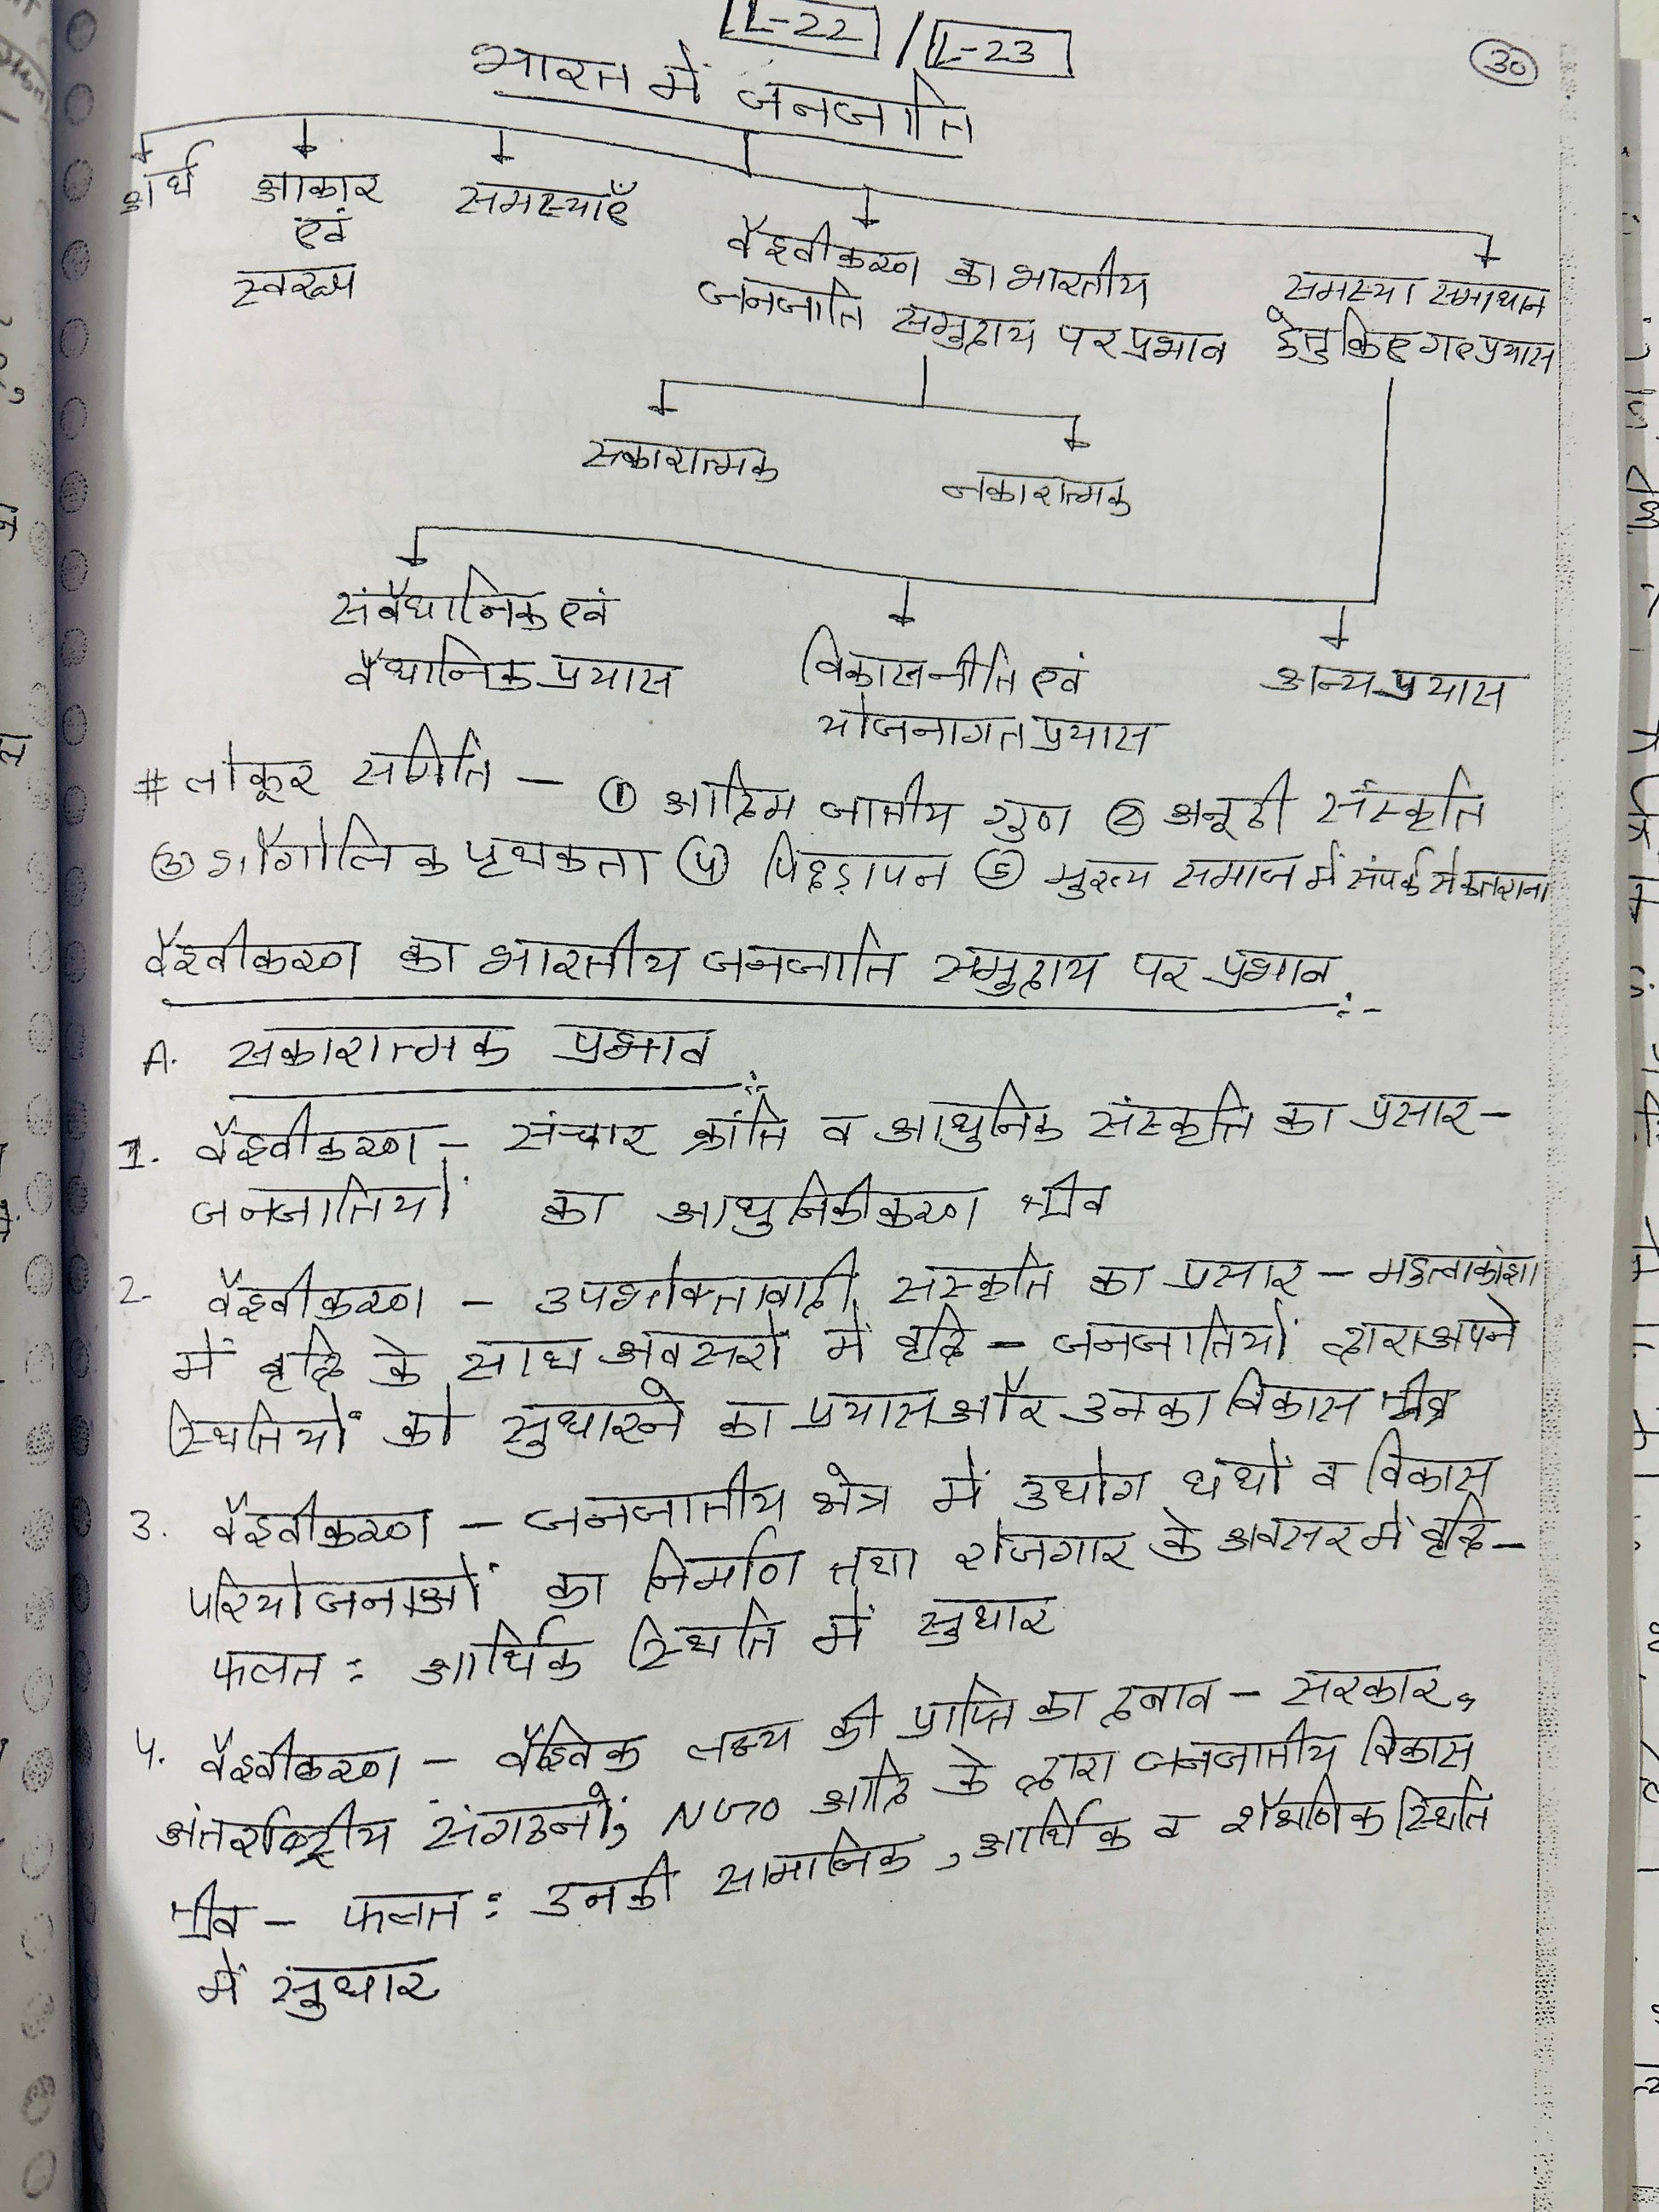 L-22 / L-23
30
भारत में जनजाति
अर्थ आकार समस्याएँ
एवं
स्वरूप
वैश्वीकरण का भारतीय
जनजाति समुदाय पर प्रभाव
समस्या समाधान
हेतु किए गए प्रयास
सकारात्मक
नकारात्मक
संवैधानिक एवं
वैधानिक प्रयास
विकास नीति एवं
योजनागत प्रयास
अन्य प्रयास
# लोकूर समिति – ① आदिम जातीय गुण ② अनूठी संस्कृति
③ भौगोलिक पृथकता ④ पिछड़ापन ⑤ मुख्य समाज में संपर्क से कतराना
वैश्वीकरण का भारतीय जनजाति समुदाय पर प्रभाव :-
A. सकारात्मक प्रभाव :
1. वैश्वीकरण – संचार क्रांति व आधुनिक संस्कृति का प्रसार –
जनजातियों का आधुनिकीकरण तीव्र
2. वैश्वीकरण – उपभोक्तावादी संस्कृति का प्रसार – महत्वाकांक्षा
में वृद्धि के साथ अवसरों में वृद्धि – जनजातियों द्वारा अपने
स्थितियों को सुधारने का प्रयास और उनका विकास तीव्र
3. वैश्वीकरण – जनजातीय क्षेत्र में उद्योग धंधों व विकास
परियोजनाओं का निर्माण तथा रोजगार के अवसर में वृद्धि –
फलत: आर्थिक स्थिति में सुधार
4. वैश्वीकरण – वैश्विक लक्ष्य की प्राप्ति का दबाव – सरकार,
अंतर्राष्ट्रीय संगठनों, NGO आदि के द्वारा जनजातीय विकास
तीव्र – फलत: उनकी सामाजिक, आर्थिक व शैक्षणिक स्थिति
में सुधार